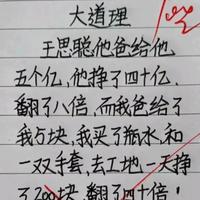 大道理
王思聪他爸给他
五个亿,他挣了四十亿.
翻了八倍,而我爸给了
我5块,我买了瓶水,和
一双手套,去工地一天挣
了200块,翻了四十倍!